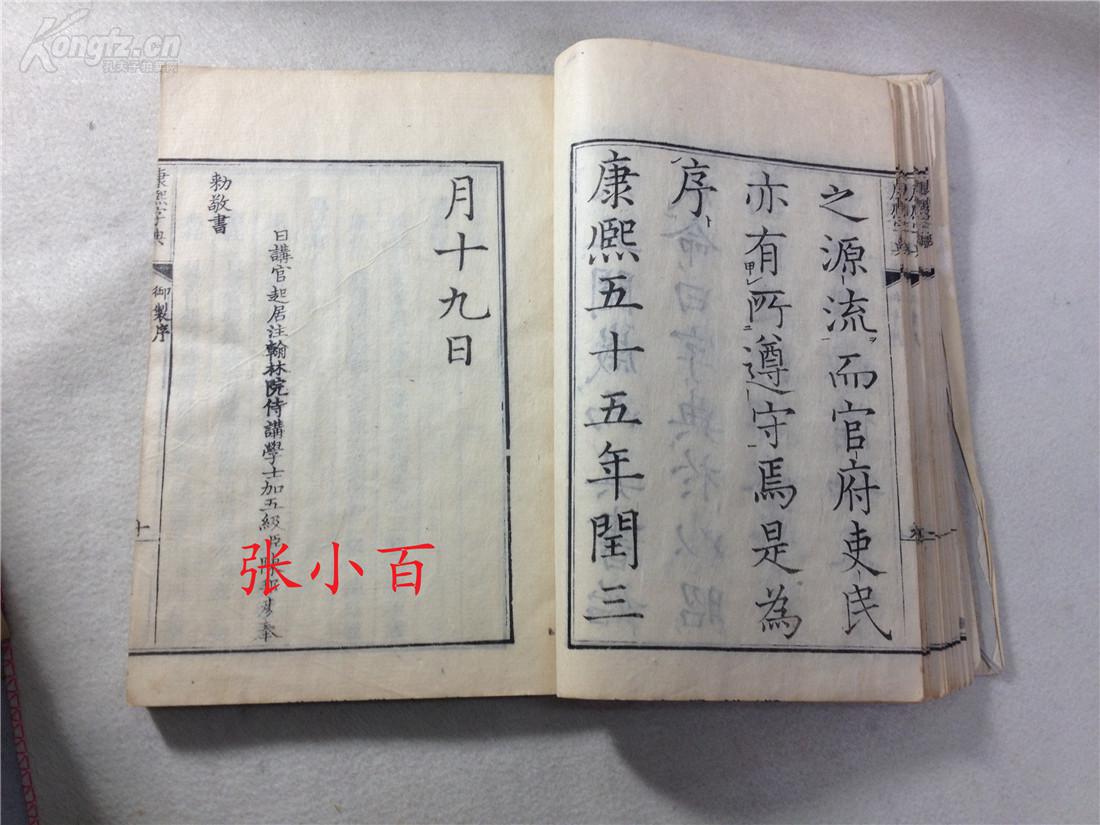 之源流而官府吏民
亦有所遵守焉是為
序
康熙五十五年閏三
月十九日
日講官起居注翰林院侍講學士加五級臣陳邦彥奉
勅敬書
康熙字典
御製序
十
张小百
Kongfz.cn
孔夫子拍卖网